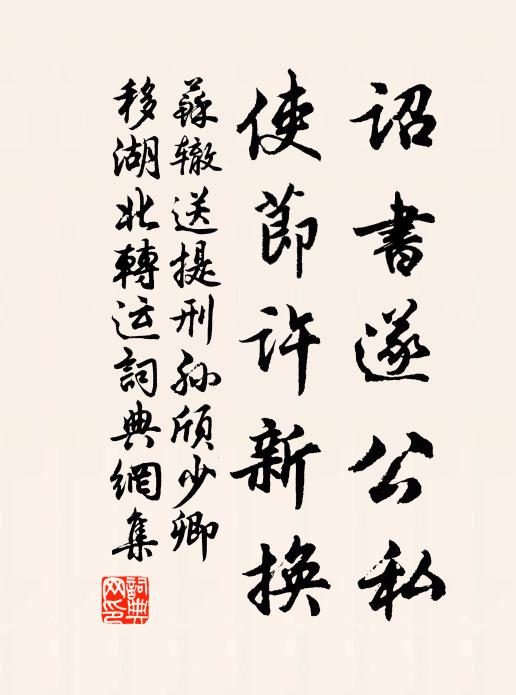 詔書遂公私
使節許新換
蘇辙送提刑孙頎少卿
移湖北轉运詞典網集
詞典网印